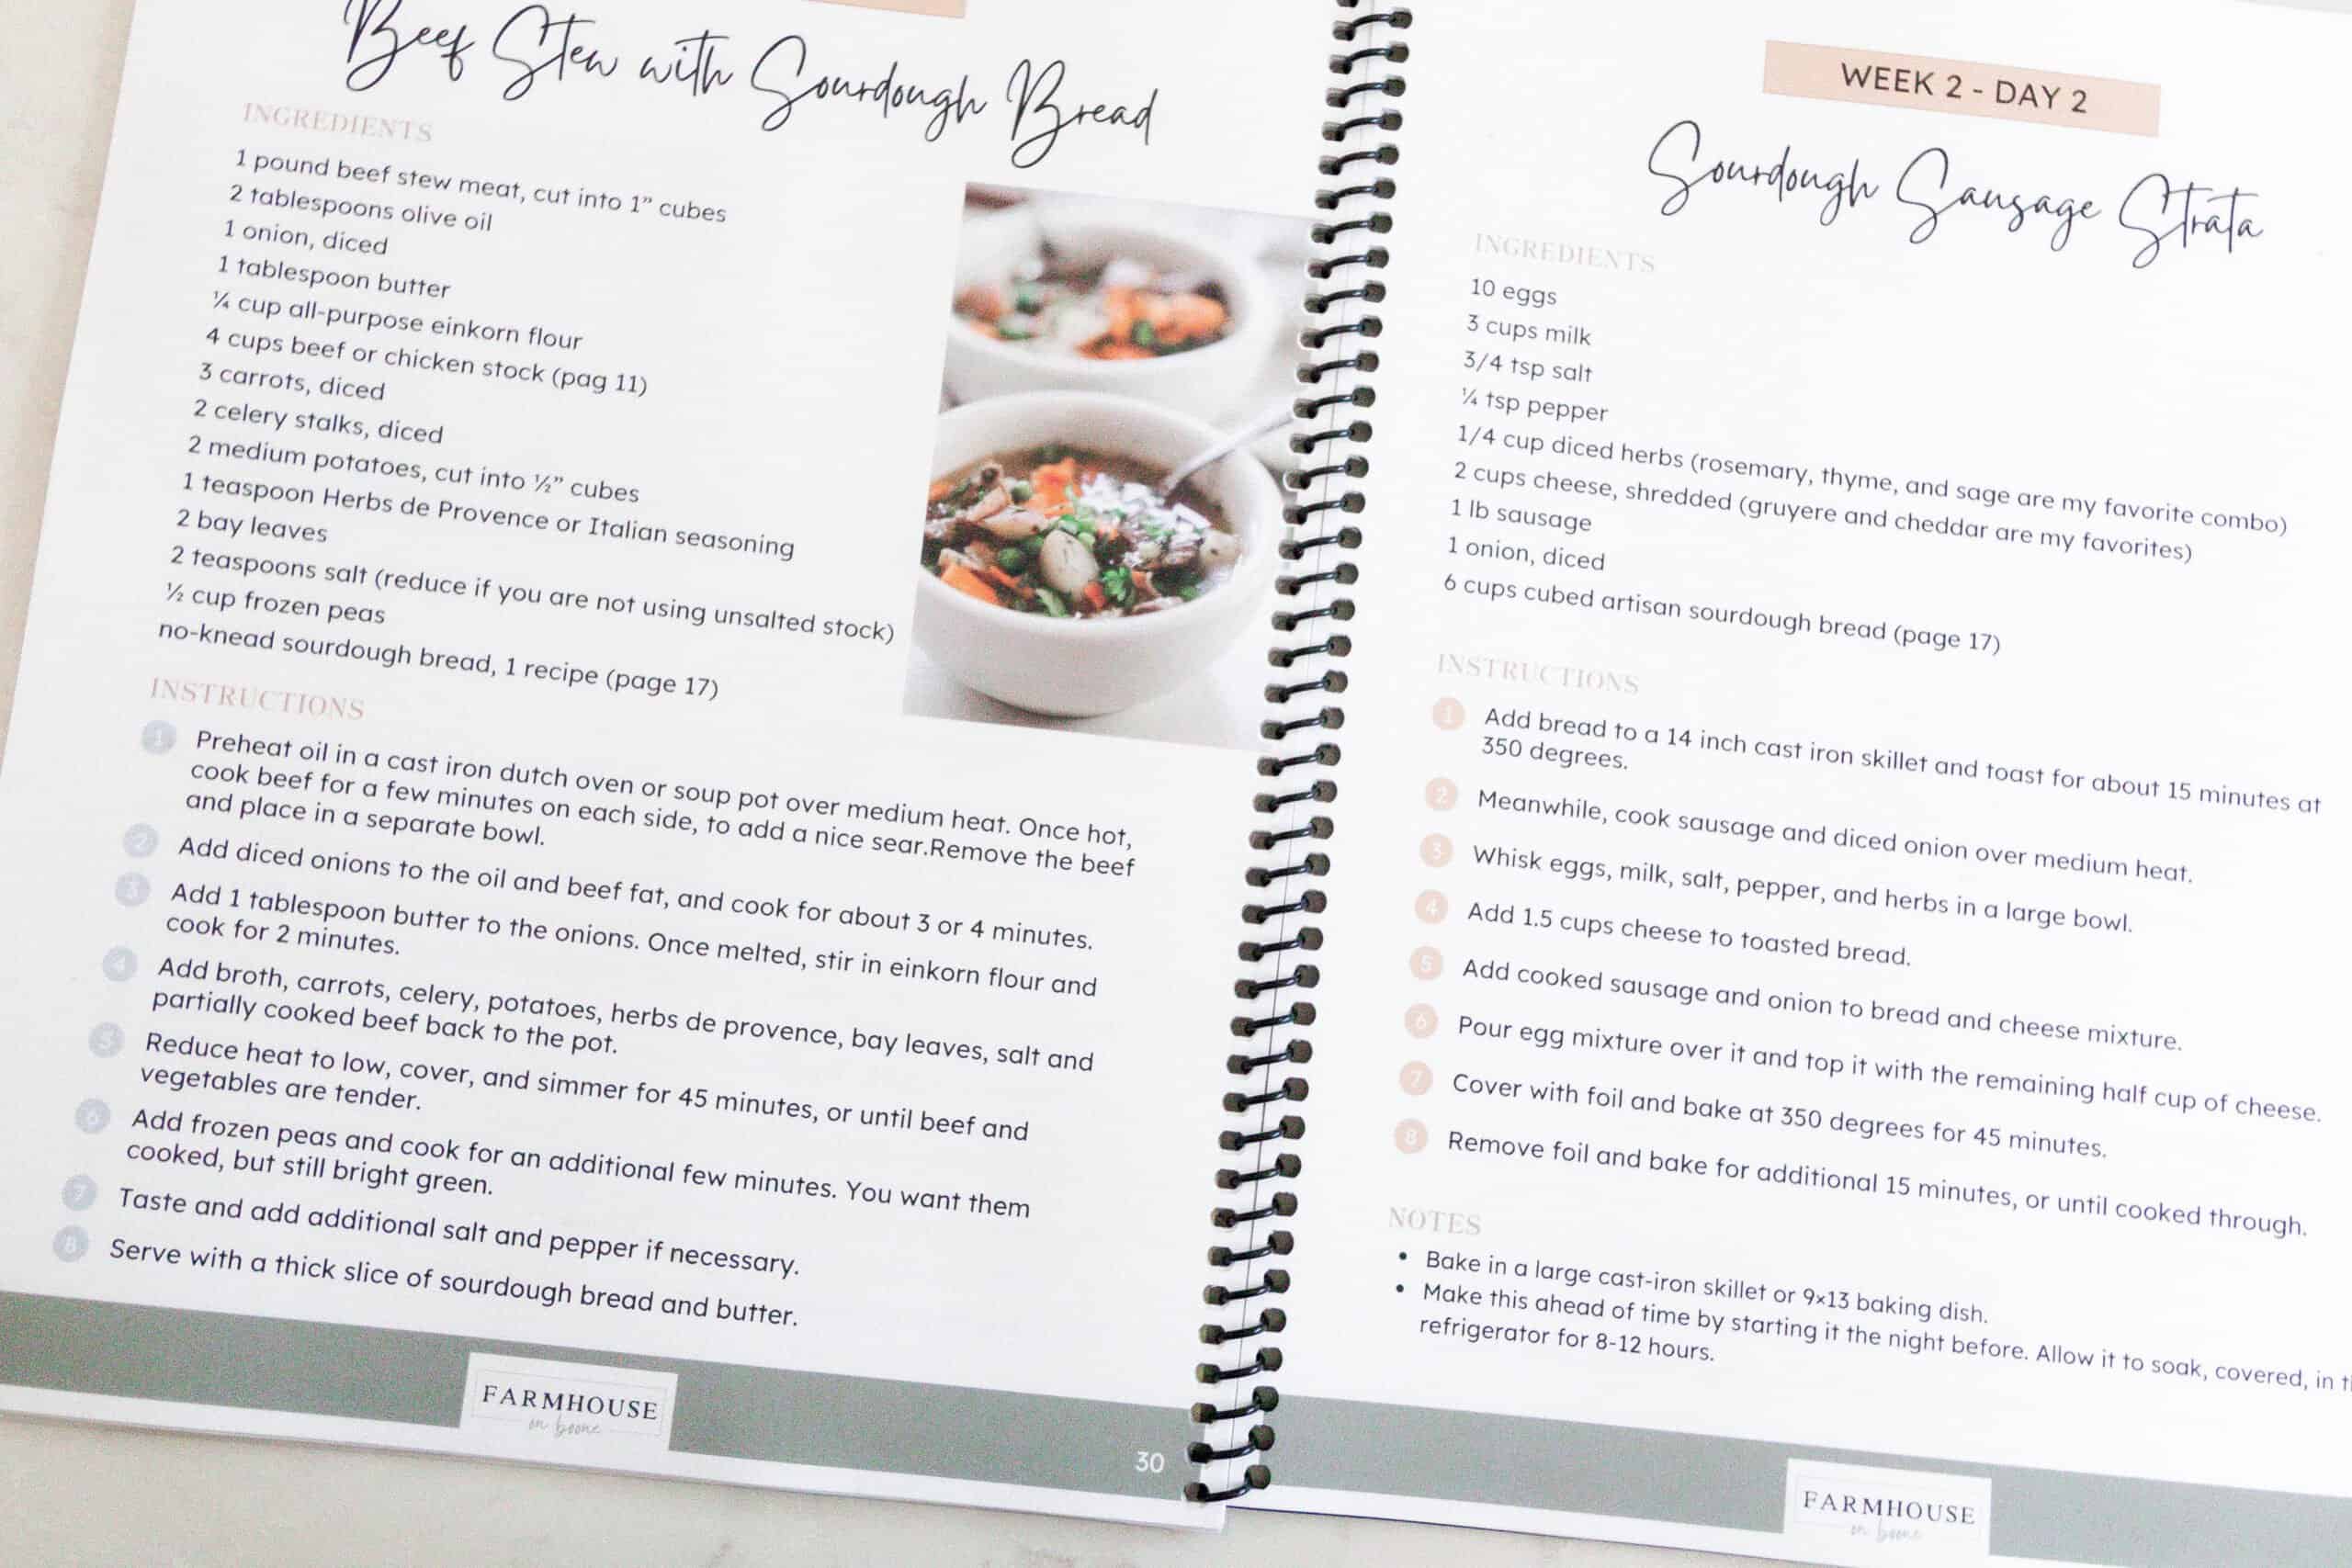 Beef Stew with Sourdough Bread
INGREDIENTS
1 pound beef stew meat, cut into 1” cubes
2 tablespoons olive oil
1 onion, diced
1 tablespoon butter
¼ cup all-purpose einkorn flour
4 cups beef or chicken stock (pag 11)
3 carrots, diced
2 celery stalks, diced
2 medium potatoes, cut into ½” cubes
1 teaspoon Herbs de Provence or Italian seasoning
2 bay leaves
2 teaspoons salt (reduce if you are not using unsalted stock)
½ cup frozen peas
no-knead sourdough bread, 1 recipe (page 17)
INSTRUCTIONS
1 Preheat oil in a cast iron dutch oven or soup pot over medium heat. Once hot,
cook beef for a few minutes on each side, to add a nice sear.Remove the beef
and place in a separate bowl.
2 Add diced onions to the oil and beef fat, and cook for about 3 or 4 minutes.
3 Add 1 tablespoon butter to the onions. Once melted, stir in einkorn flour and
cook for 2 minutes.
4 Add broth, carrots, celery, potatoes, herbs de provence, bay leaves, salt and
partially cooked beef back to the pot.
5 Reduce heat to low, cover, and simmer for 45 minutes, or until beef and
vegetables are tender.
6 Add frozen peas and cook for an additional few minutes. You want them
cooked, but still bright green.
7 Taste and add additional salt and pepper if necessary.
8 Serve with a thick slice of sourdough bread and butter.
FARMHOUSE
on boone
30
WEEK 2 - DAY 2
Sourdough Sausage Strata
INGREDIENTS
10 eggs
3 cups milk
3/4 tsp salt
¼ tsp pepper
1/4 cup diced herbs (rosemary, thyme, and sage are my favorite combo)
2 cups cheese, shredded (gruyere and cheddar are my favorites)
1 lb sausage
1 onion, diced
6 cups cubed artisan sourdough bread (page 17)
INSTRUCTIONS
1 Add bread to a 14 inch cast iron skillet and toast for about 15 minutes at
350 degrees.
2 Meanwhile, cook sausage and diced onion over medium heat.
3 Whisk eggs, milk, salt, pepper, and herbs in a large bowl.
4 Add 1.5 cups cheese to toasted bread.
5 Add cooked sausage and onion to bread and cheese mixture.
6 Pour egg mixture over it and top it with the remaining half cup of cheese.
7 Cover with foil and bake at 350 degrees for 45 minutes.
8 Remove foil and bake for additional 15 minutes, or until cooked through.
NOTES
• Bake in a large cast-iron skillet or 9×13 baking dish.
• Make this ahead of time by starting it the night before. Allow it to soak, covered, in
refrigerator for 8-12 hours.
FARMHOUSE
on boone